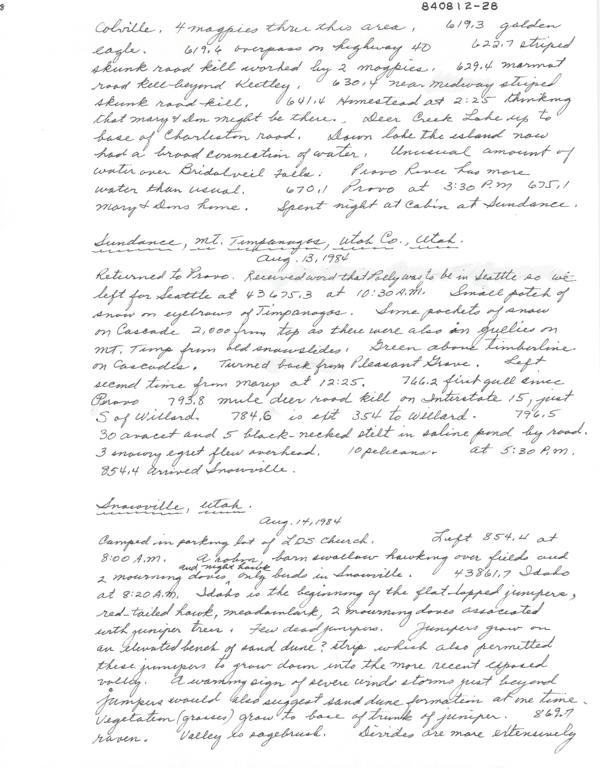 840812-28
Colville. 4 magpies thru this area. 619.3 golden
eagle. 619.6 overpass on highway 40 622.7 striped
skunk road kill worked by 2 magpies. 629.4 marmot
road kill beyond Keetley. 630.4 near Midway striped
skunk road kill. 641.4 Homestead at 2:25 thinking
that Mary & Don might be there. Deer Creek Lake up to
base of Charleston road. Down lake the island now
had a broad connection of water. Unusual amount of
water over Bridalveil Falls. Provo River has more
water than usual. 670.1 Provo at 3:30 P.M 675.1
Mary & Dons home. Spent night at Cabin at Sundance.
Sundance, Mt. Timpanogos, Utah Co., Utah.
Aug. 13, 1984
Returned to Provo. Received word that Polly was to be in Seattle so we
left for Seattle at 43675.3 at 10:30 A.M. Small patch of
snow on eyebrows of Timpanogos. Some pockets of snow
on Cascade 2,000 from top as there were also in gullies on
Mt. Timp from old snowslides. Green above timberline
on Cascades. Turned back from Pleasant Grove. Left
second time from Marys at 12:25. 766.2 first gull since
Provo 793.8 mule deer road kill on Interstate 15, just
S of Willard. 784.6 is exit 354 to Willard. 796.5
30 avocet and 5 black-necked stilt in saline pond by road.
3 snowy egret flew overhead. 10 pelicans. at 5:30 P.M.
854.4 arrived Snowville.
Snowville, Utah.
Aug. 14, 1984
Camped in parking lot of LDS Church. Left 854.4 at
8:00 A.M. A robin, barn swallow hawking over fields and
2 mourning doves and night hawk only birds in Snowville. 43861.7 Idaho
at 8:20 A.M. Idaho is the beginning of the flat-topped junipers,
red-tailed hawk, meadowlark, 2 mourning doves associated
with juniper trees. Few dead junipers. Junipers grow on
an elevated bench of sand dune? strip which also permitted
these junipers to grow down into the more recent exposed
valley. A warning sign of severe wind storms just beyond
junipers would also suggest sand dune formation at one time.
Vegetation (grasses) grow to base of trunk of juniper. 869.7
raven. Valley is sagebrush. Divides are more extensively